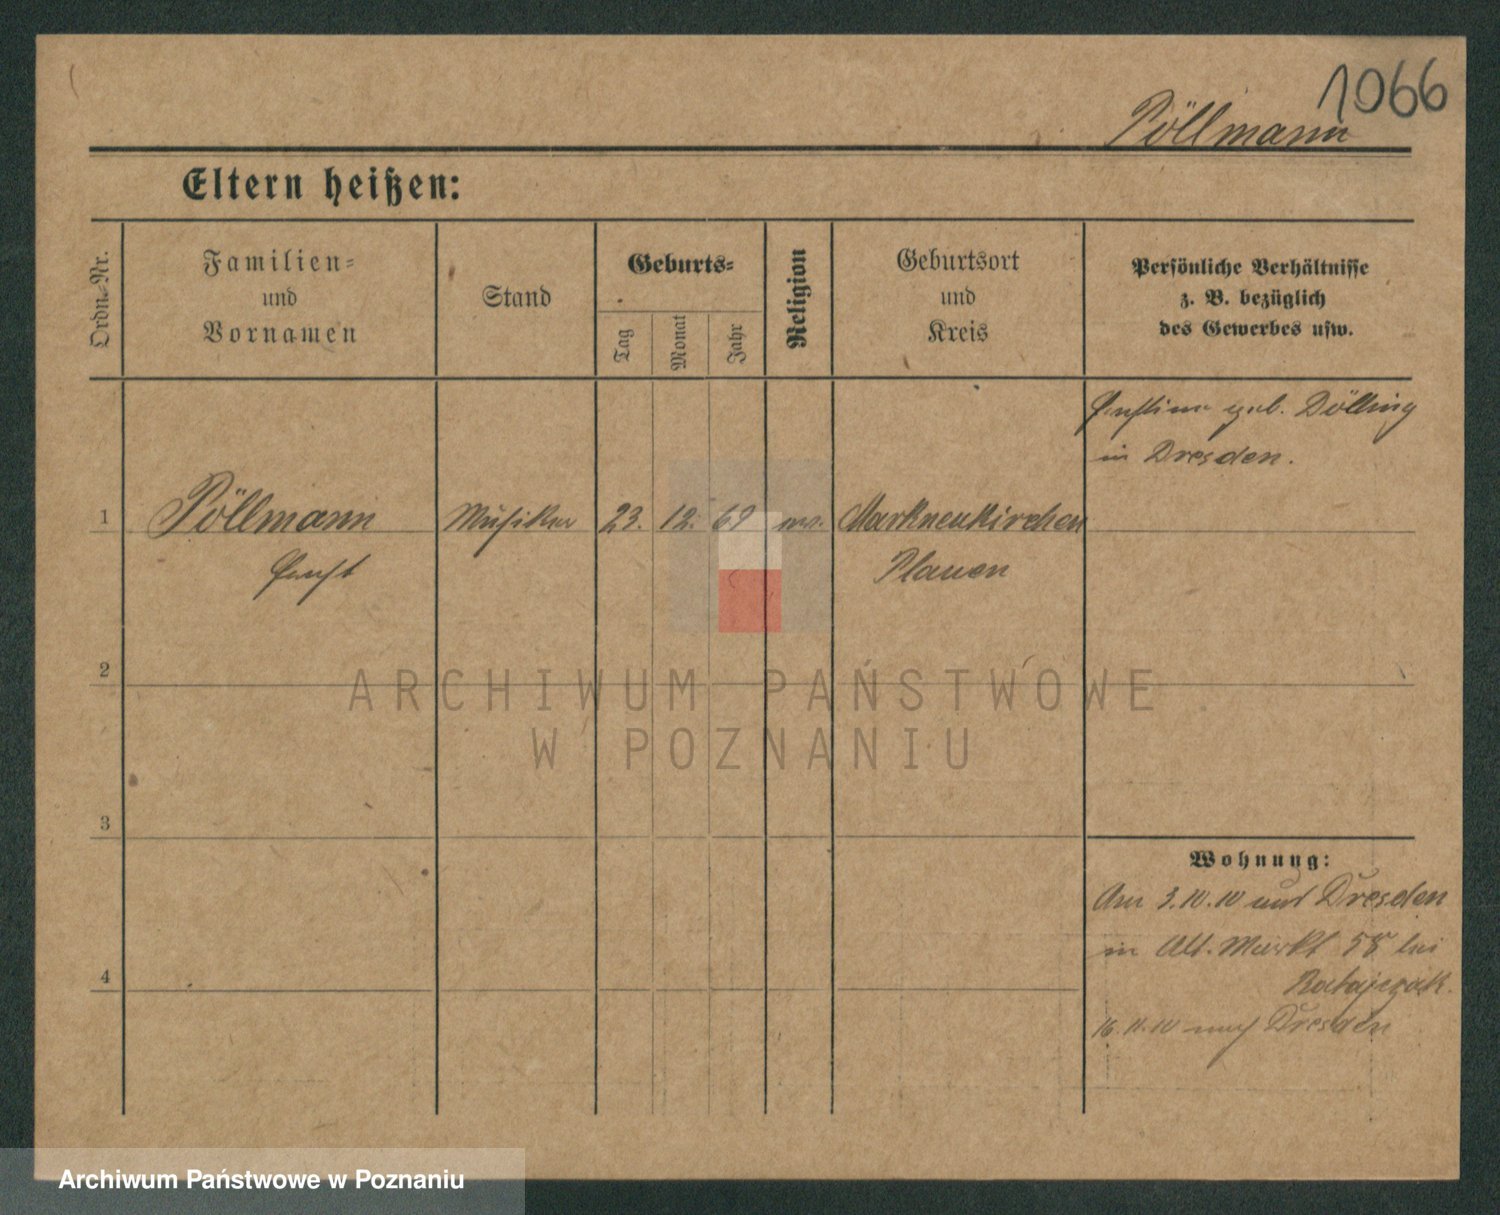 1066
Pöllmann
Eltern heißen:
Ordn.-Nr.
Familien-
und
Vornamen
Stand
Geburts-
Tag
Monat
Jahr
Religion
Geburtsort
und
Kreis
Persönliche Verhältnisse
z. B. bezüglich
des Gewerbes usw.
geb. Dölling
in Dresden.
1
Pöllmann
Musiker
23.
12.
69
Markneukirchen
Ernst
Plauen
2
ARCHIWUM PAŃSTWOWE
W POZNANIU
3
Wohnung:
Am 3.10.10 aus Dresden
in Alt. Markt 58 bei
Ratajczak.
4
16.11.10 nach Dresden
Archiwum Państwowe w Poznaniu